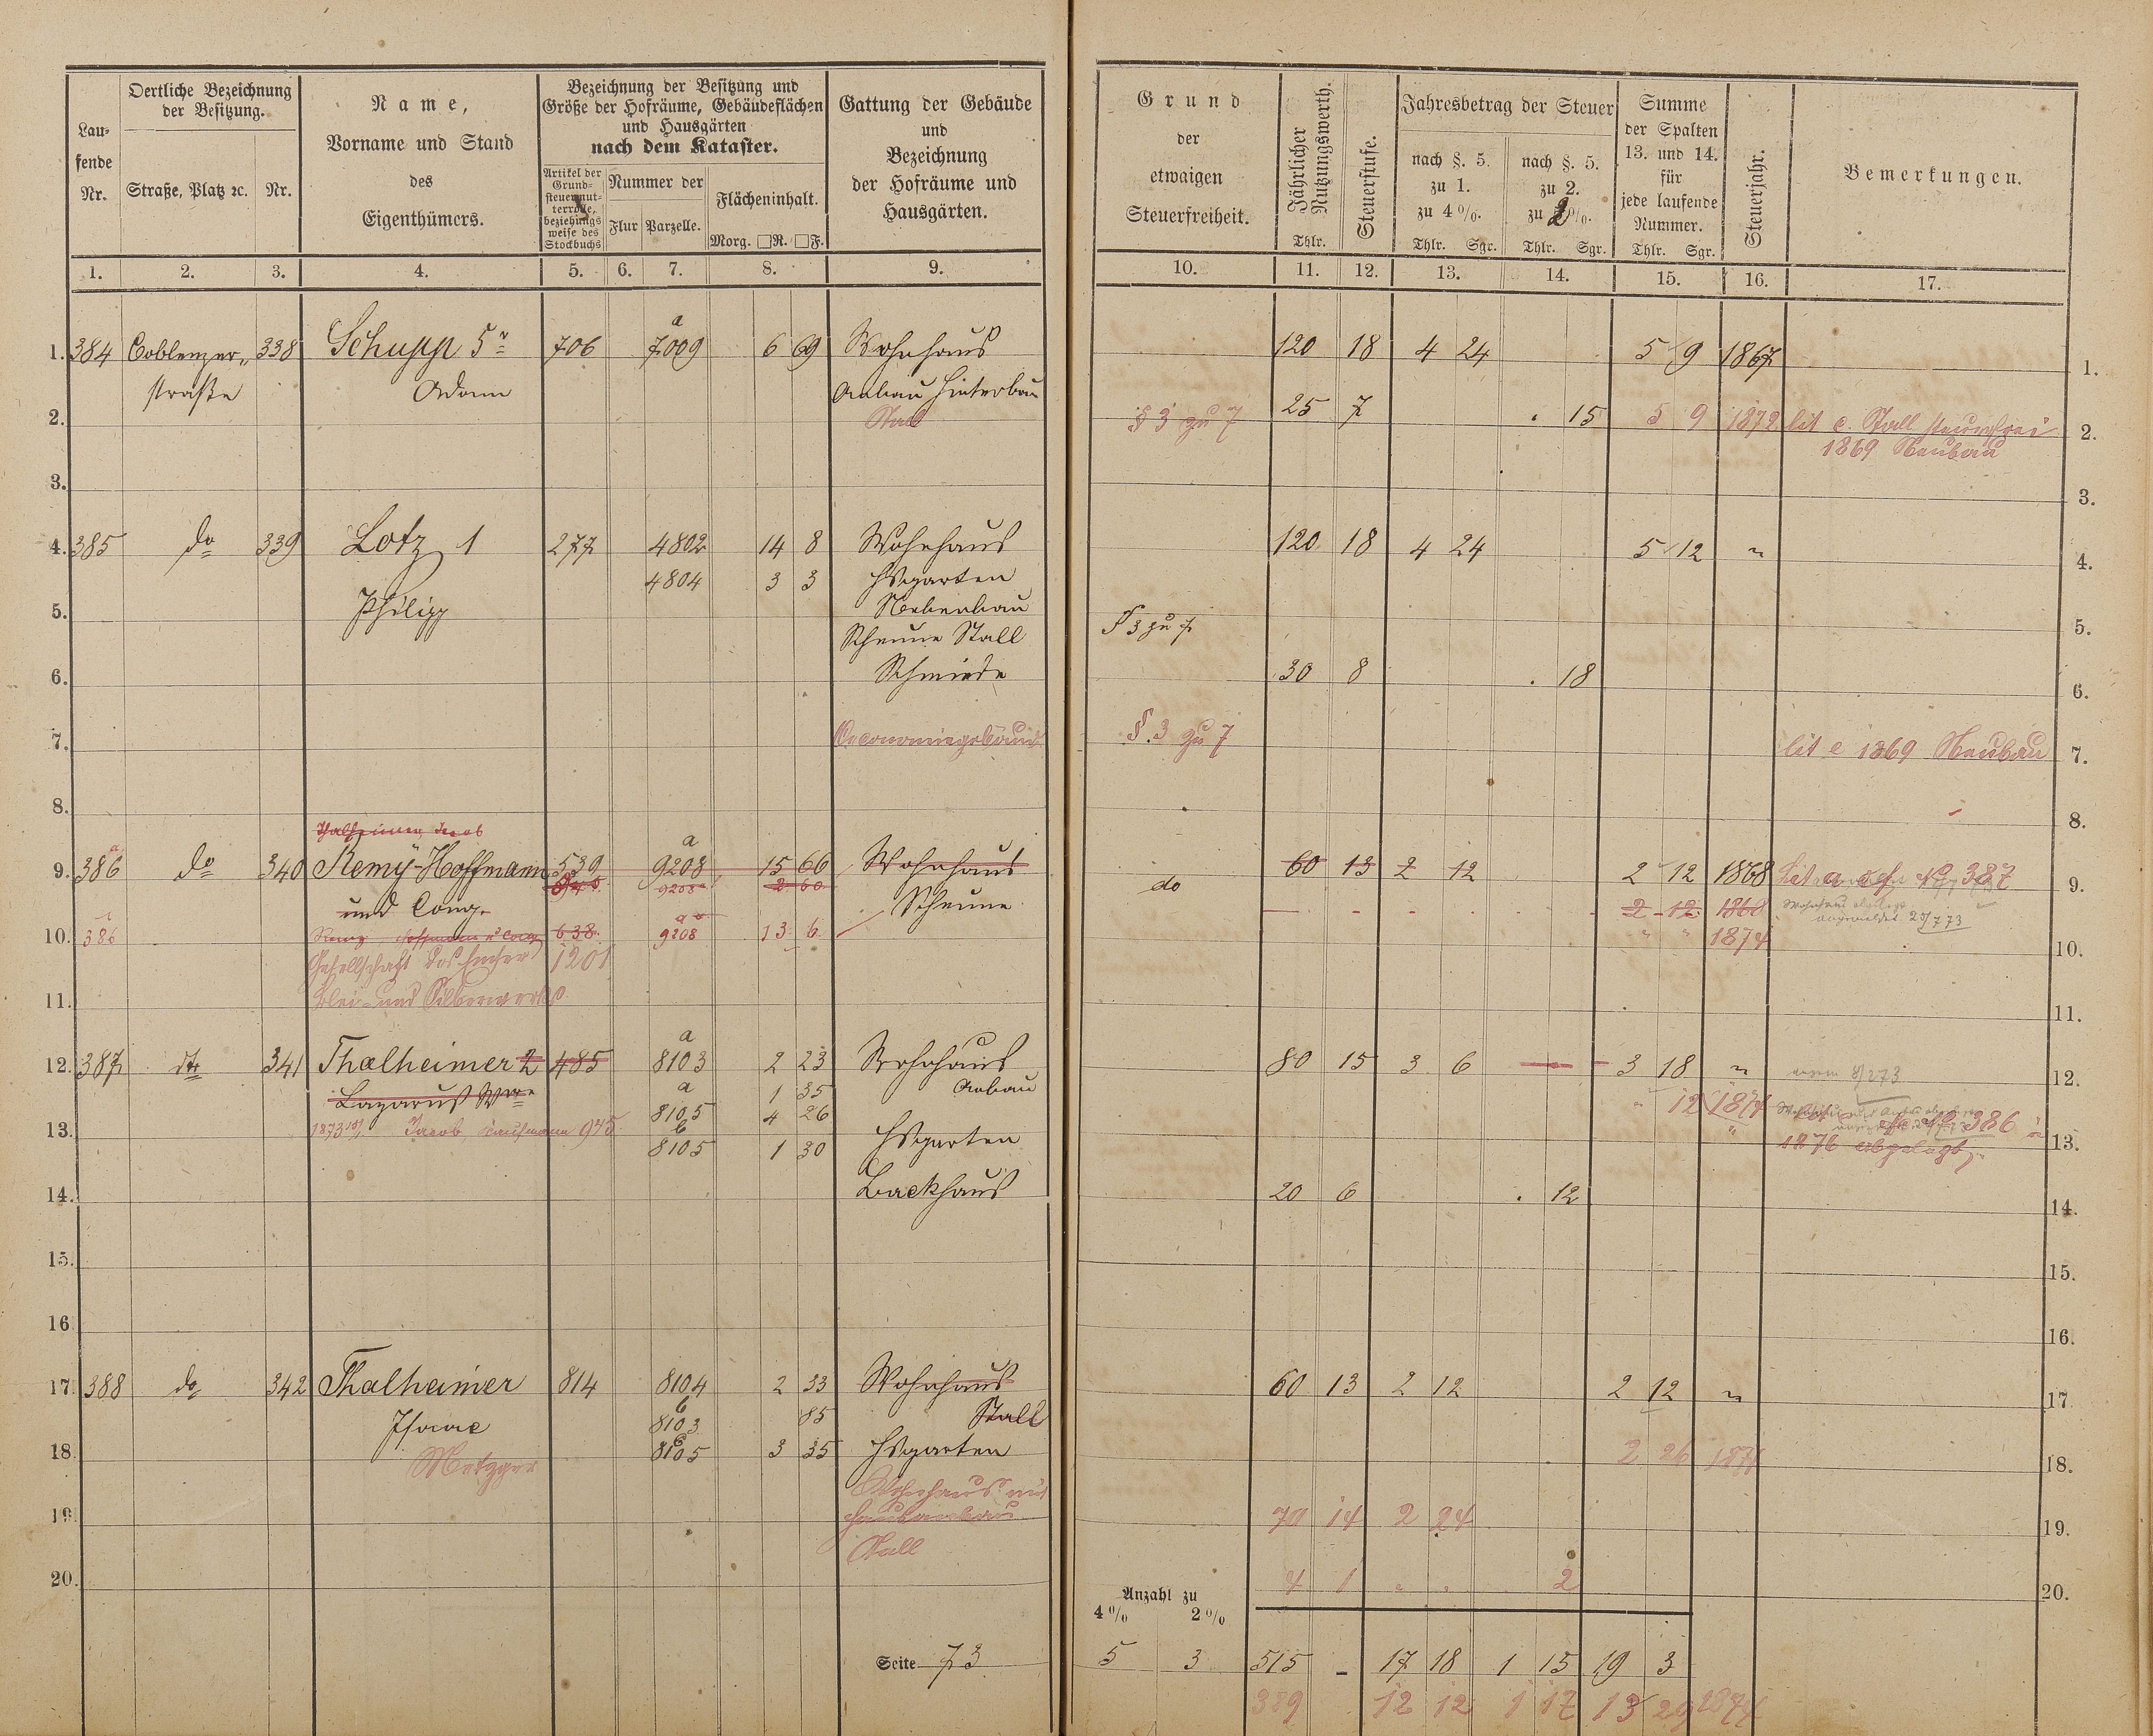 Lau-
fende
Nr.
Oertliche Bezeichnung
der Besitzung.
Straße, Platz ꝛc.
Nr.
Name,
Vorname und Stand
des
Eigenthümers.
Bezeichnung der Besitzung und
Größe der Hofräume, Gebäudeflächen
und Hausgärten
nach dem Kataster.
Artikel der
Grund-
steuermut-
terrolle,
beziehungs
weise des
Stockbuchs
Nummer der
Flur Parzelle.
Flächeninhalt.
Morg. □R. □F.
Gattung der Gebäude
und
Bezeichnung
der Hofräume und
Hausgärten.
Grund
der
etwaigen
Steuerfreiheit.
Jährlicher
Nutzungswerth.
Thlr.
Steuerstufe.
Jahresbetrag der Steuer
nach §. 5.
zu 1.
zu 4%.
Thlr. Sgr.
nach §. 5.
zu 2.
zu 2%.
Thlr. Sgr.
Summe
der Spalten
13. und 14.
für
jede laufende
Nummer.
Thlr. Sgr.
Steuerjahr.
Bemerkungen.
1. 2. 3. 4. 5. 6. 7. 8. 9. 10. 11. 12. 13. 14. 15. 16. 17.
a
1. 384 Coblenzer- 338 Schupp 5r 706 7009 6 69 Wohnhaus 120 18 4 24 5 9 1867 1.
straße Adam Anbau Hinterbau
2. Stall § 3 zu 7 25 7 . 15 5 9 1872 lit c. Stall steuerfrei 2.
1869 Neubau
3. 3.
4. 385 do 339 Lotz 1 277 4802 14 8 Wohnhaus 120 18 4 24 5 12 " 4.
4804 3 3 Hsgarten
5. Philipp Nebenbau § 3 zu 7 5.
Scheune Stall
6. Schmiede 30 8 . 18 6.
7. Oeconomiegebäude §. 3 zu 7 lit e 1869 Neubau 7.
8. 8.
Thalheimer, Jacob
a
9. 386 do 340 Remy-Hoffmann 539 9208 15 66 Wohnhaus do 60 13 2 12 2 12 1868 Lit a cf No 387 9.
9208 2 60
und Comp. Scheune 2 12 1868
10. 386 Remy, Hoffmann u Comp 638 9208 13 6 " " 1874 10.
Gesellschaft des Emser 1201
11. Blei- und Silberwerks 11.
a
12. 387 dto 341 Thalheimer 2 485 8103 2 23 Wohnhaus 80 15 3 6 3 18 " 12.
a 1 35 Anbau
Lazarus Wwe 8105 4 26 " 12 1874
13. Jacob, Kaufmann 945 b Hsgarten cf No 386 13.
8105 1 30 1876
14. Backhaus 20 6 . 12 14.
15. 15.
16. 16.
17. 388 do 342 Thalheimer 814 8104 2 33 Wohnhaus 60 13 2 12 2 12 " 17.
b
Isaac 8103 85 Stall
18. Metzger 8105 3 35 Hsgarten 2 26 18.
Wohnhaus mit
19. 70 14 2 24 19.
Stall
20. 4 1 " " 2 20.
Anzahl zu
4% 2%
Seite 73 5 3 515 - 17 18 1 15 19 3
389 12 12 1 17 13 29 1874